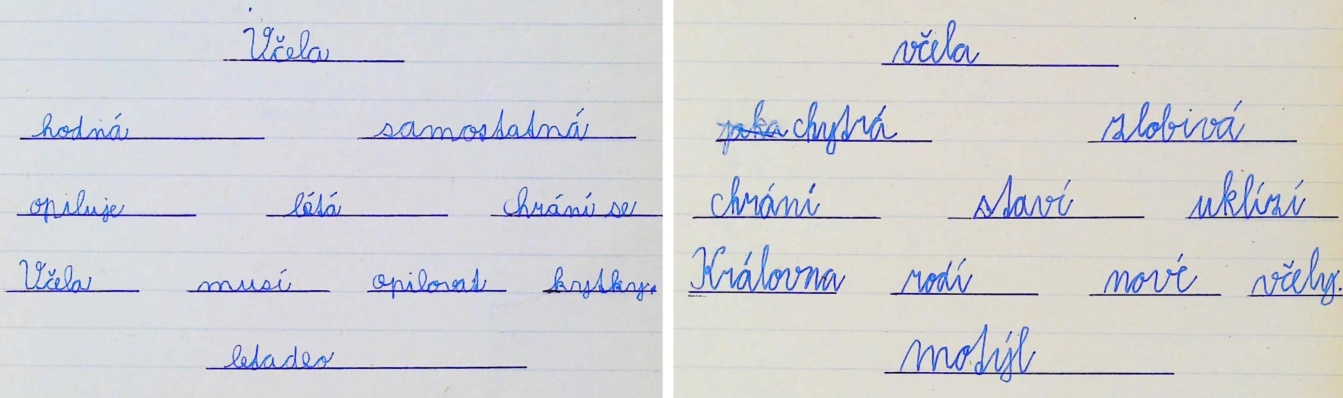 Včela
hodná samostatná
opiluje létá chrání se
Včela musí opilovat krytky.
letadlo
včela
chytrá zlobivá
chrání staví uklízí
Královna rodí nové včely.
motýl